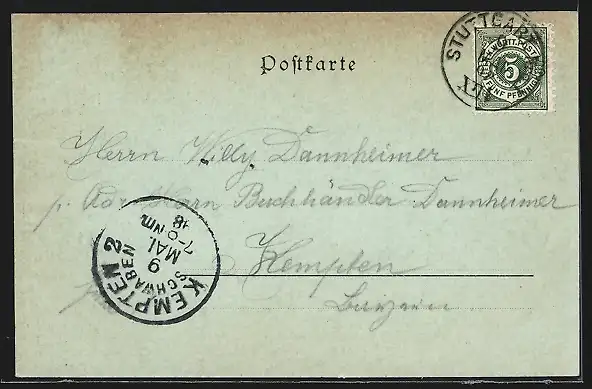 Postkarte
STUTTGART
K. WÜRTT. POST
5
FÜNF PFENNIG
Herrn Willy Dannheimer
p. Adr. Herrn Buchhändler Dannheimer
Kempten
KEMPTEN 2
SCHWABEN
9
MAI.
7-8 Nm.
Bayern